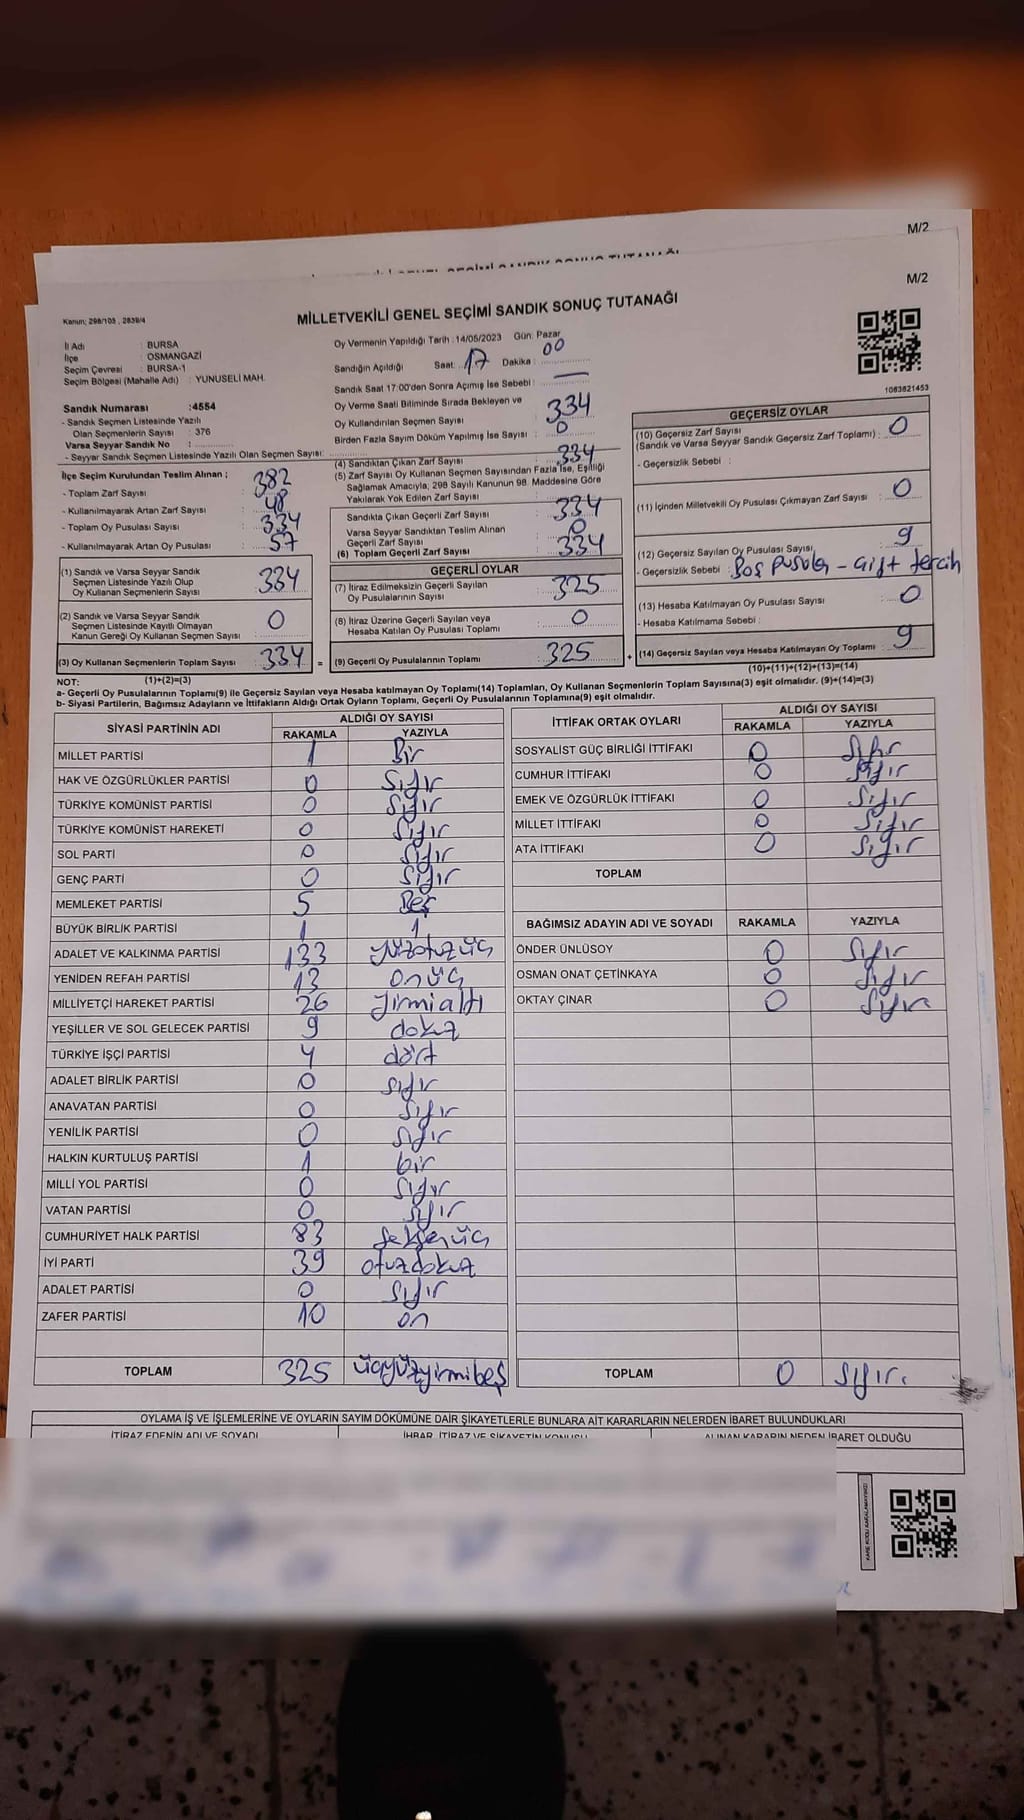 M/2
M/2
MİLLETVEKİLİ GENEL SEÇİMİ SANDIK SONUÇ TUTANAĞI
Kanun; 298/105 , 2839/4
İl Adı : BURSA
İlçe : OSMANGAZİ
Seçim Çevresi : BURSA-1
Seçim Bölgesi (Mahalle Adı) : YUNUSELİ MAH.
Sandık Numarası :4554
- Sandık Seçmen Listesinde Yazılı
Olan Seçmenlerin Sayısı : 376
Varsa Seyyar Sandık No :
- Seyyar Sandık Seçmen Listesinde Yazılı Olan Seçmen Sayısı:
Oy Vermenin Yapıldığı Tarih :14/05/2023 Gün: Pazar
Sandığın Açıldığı Saat: 17 Dakika : 00
Sandık Saat 17:00'den Sonra Açımış İse Sebebi : —
Oy Verme Saati Bitiminde Sırada Bekleyen ve
Oy Kullandırılan Seçmen Sayısı : 334
Birden Fazla Sayım Döküm Yapılmış İse Sayısı : 0
1063621453
İlçe Seçim Kurulundan Teslim Alınan ;
- Toplam Zarf Sayısı : 382
- Kullanılmayarak Artan Zarf Sayısı : 48
- Toplam Oy Pusulası Sayısı : 334
- Kullanılmayarak Artan Oy Pusulası : 57
(1) Sandık ve Varsa Seyyar Sandık
Seçmen Listesinde Yazılı Olup
Oy Kullanan Seçmenlerin Sayısı : 334
(2) Sandık ve Varsa Seyyar Sandık
Seçmen Listesinde Kayıtlı Olmayan
Kanun Gereği Oy Kullanan Seçmen Sayısı : 0
(3) Oy Kullanan Seçmenlerin Toplam Sayısı : 334 =
(4) Sandıktan Çıkan Zarf Sayısı : 334
(5) Zarf Sayısı Oy Kullanan Seçmen Sayısından Fazla İse, Eşitliği
Sağlamak Amacıyla; 298 Sayılı Kanunun 98. Maddesine Göre
Yakılarak Yok Edilen Zarf Sayısı :
Sandıkta Çıkan Geçerli Zarf Sayısı : 334
Varsa Seyyar Sandıktan Teslim Alınan
Geçerli Zarf Sayısı : 0
(6) Toplam Geçerli Zarf Sayısı : 334
GEÇERLİ OYLAR
(7) İtiraz Edilmeksizin Geçerli Sayılan
Oy Pusulalarının Sayısı : 325
(8) İtiraz Üzerine Geçerli Sayılan veya
Hesaba Katılan Oy Pusulası Toplamı : 0
(9) Geçerli Oy Pusulalarının Toplamı : 325 +
GEÇERSİZ OYLAR
(10) Geçersiz Zarf Sayısı
(Sandık ve Varsa Seyyar Sandık Geçersiz Zarf Toplamı) : 0
- Geçersizlik Sebebi :
(11) İçinden Milletvekili Oy Pusulası Çıkmayan Zarf Sayısı : 0
(12) Geçersiz Sayılan Oy Pusulası Sayısı : 9
- Geçersizlik Sebebi : Boş pusula - çift tercih
(13) Hesaba Katılmayan Oy Pusulası Sayısı : 0
- Hesaba Katılmama Sebebi :
(14) Geçersiz Sayılan veya Hesaba Katılmayan Oy Toplamı : 9
NOT: (1)+(2)=(3) (10)+(11)+(12)+(13)=(14)
a- Geçerli Oy Pusulalarının Toplamı(9) ile Geçersiz Sayılan veya Hesaba katılmayan Oy Toplamı(14) Toplamları, Oy Kullanan Seçmenlerin Toplam Sayısına(3) eşit olmalıdır. (9)+(14)=(3)
b- Siyasi Partilerin, Bağımsız Adayların ve İttifakların Aldığı Ortak Oyların Toplamı, Geçerli Oy Pusulalarının Toplamına(9) eşit olmalıdır.
SİYASİ PARTİNİN ADI ALDIĞI OY SAYISI
RAKAMLA YAZIYLA
MİLLET PARTİSİ 1 Bir
HAK VE ÖZGÜRLÜKLER PARTİSİ 0 Sıfır
TÜRKİYE KOMÜNİST PARTİSİ 0 Sıfır
TÜRKİYE KOMÜNİST HAREKETİ 0 Sıfır
SOL PARTİ 0 Sıfır
GENÇ PARTİ 0 Sıfır
MEMLEKET PARTİSİ 5 Beş
BÜYÜK BİRLİK PARTİSİ 1 1
ADALET VE KALKINMA PARTİSİ 133 yüzotuzüç
YENİDEN REFAH PARTİSİ 13 onüç
MİLLİYETÇİ HAREKET PARTİSİ 26 yirmialtı
YEŞİLLER VE SOL GELECEK PARTİSİ 9 dokuz
TÜRKİYE İŞÇİ PARTİSİ 4 dört
ADALET BİRLİK PARTİSİ 0 sıfır
ANAVATAN PARTİSİ 0 sıfır
YENİLİK PARTİSİ 0 sıfır
HALKIN KURTULUŞ PARTİSİ 1 bir
MİLLİ YOL PARTİSİ 0 sıfır
VATAN PARTİSİ 0 sıfır
CUMHURİYET HALK PARTİSİ 83 seksenüç
İYİ PARTİ 39 otuzdokuz
ADALET PARTİSİ 0 sıfır
ZAFER PARTİSİ 10 on
TOPLAM 325 üçyüzyirmibeş
İTTİFAK ORTAK OYLARI ALDIĞI OY SAYISI
RAKAMLA YAZIYLA
SOSYALİST GÜÇ BİRLİĞİ İTTİFAKI 0 sıfır
CUMHUR İTTİFAKI 0 sıfır
EMEK VE ÖZGÜRLÜK İTTİFAKI 0 sıfır
MİLLET İTTİFAKI 0 sıfır
ATA İTTİFAKI 0 sıfır
TOPLAM
BAĞIMSIZ ADAYIN ADI VE SOYADI RAKAMLA YAZIYLA
ÖNDER ÜNLÜSOY 0 sıfır
OSMAN ONAT ÇETİNKAYA 0 sıfır
OKTAY ÇINAR 0 sıfır
TOPLAM 0 sıfır.
OYLAMA İŞ VE İŞLEMLERİNE VE OYLARIN SAYIM DÖKÜMÜNE DAİR ŞİKAYETLERLE BUNLARA AİT KARARLARIN NELERDEN İBARET BULUNDUKLARI
İTİRAZ EDENİN ADI VE SOYADI İHBAR, İTİRAZ VE ŞİKAYETİN KONUSU ALINAN KARARIN NEDEN İBARET OLDUĞU
KARE KODU KARALAMAYINIZ!